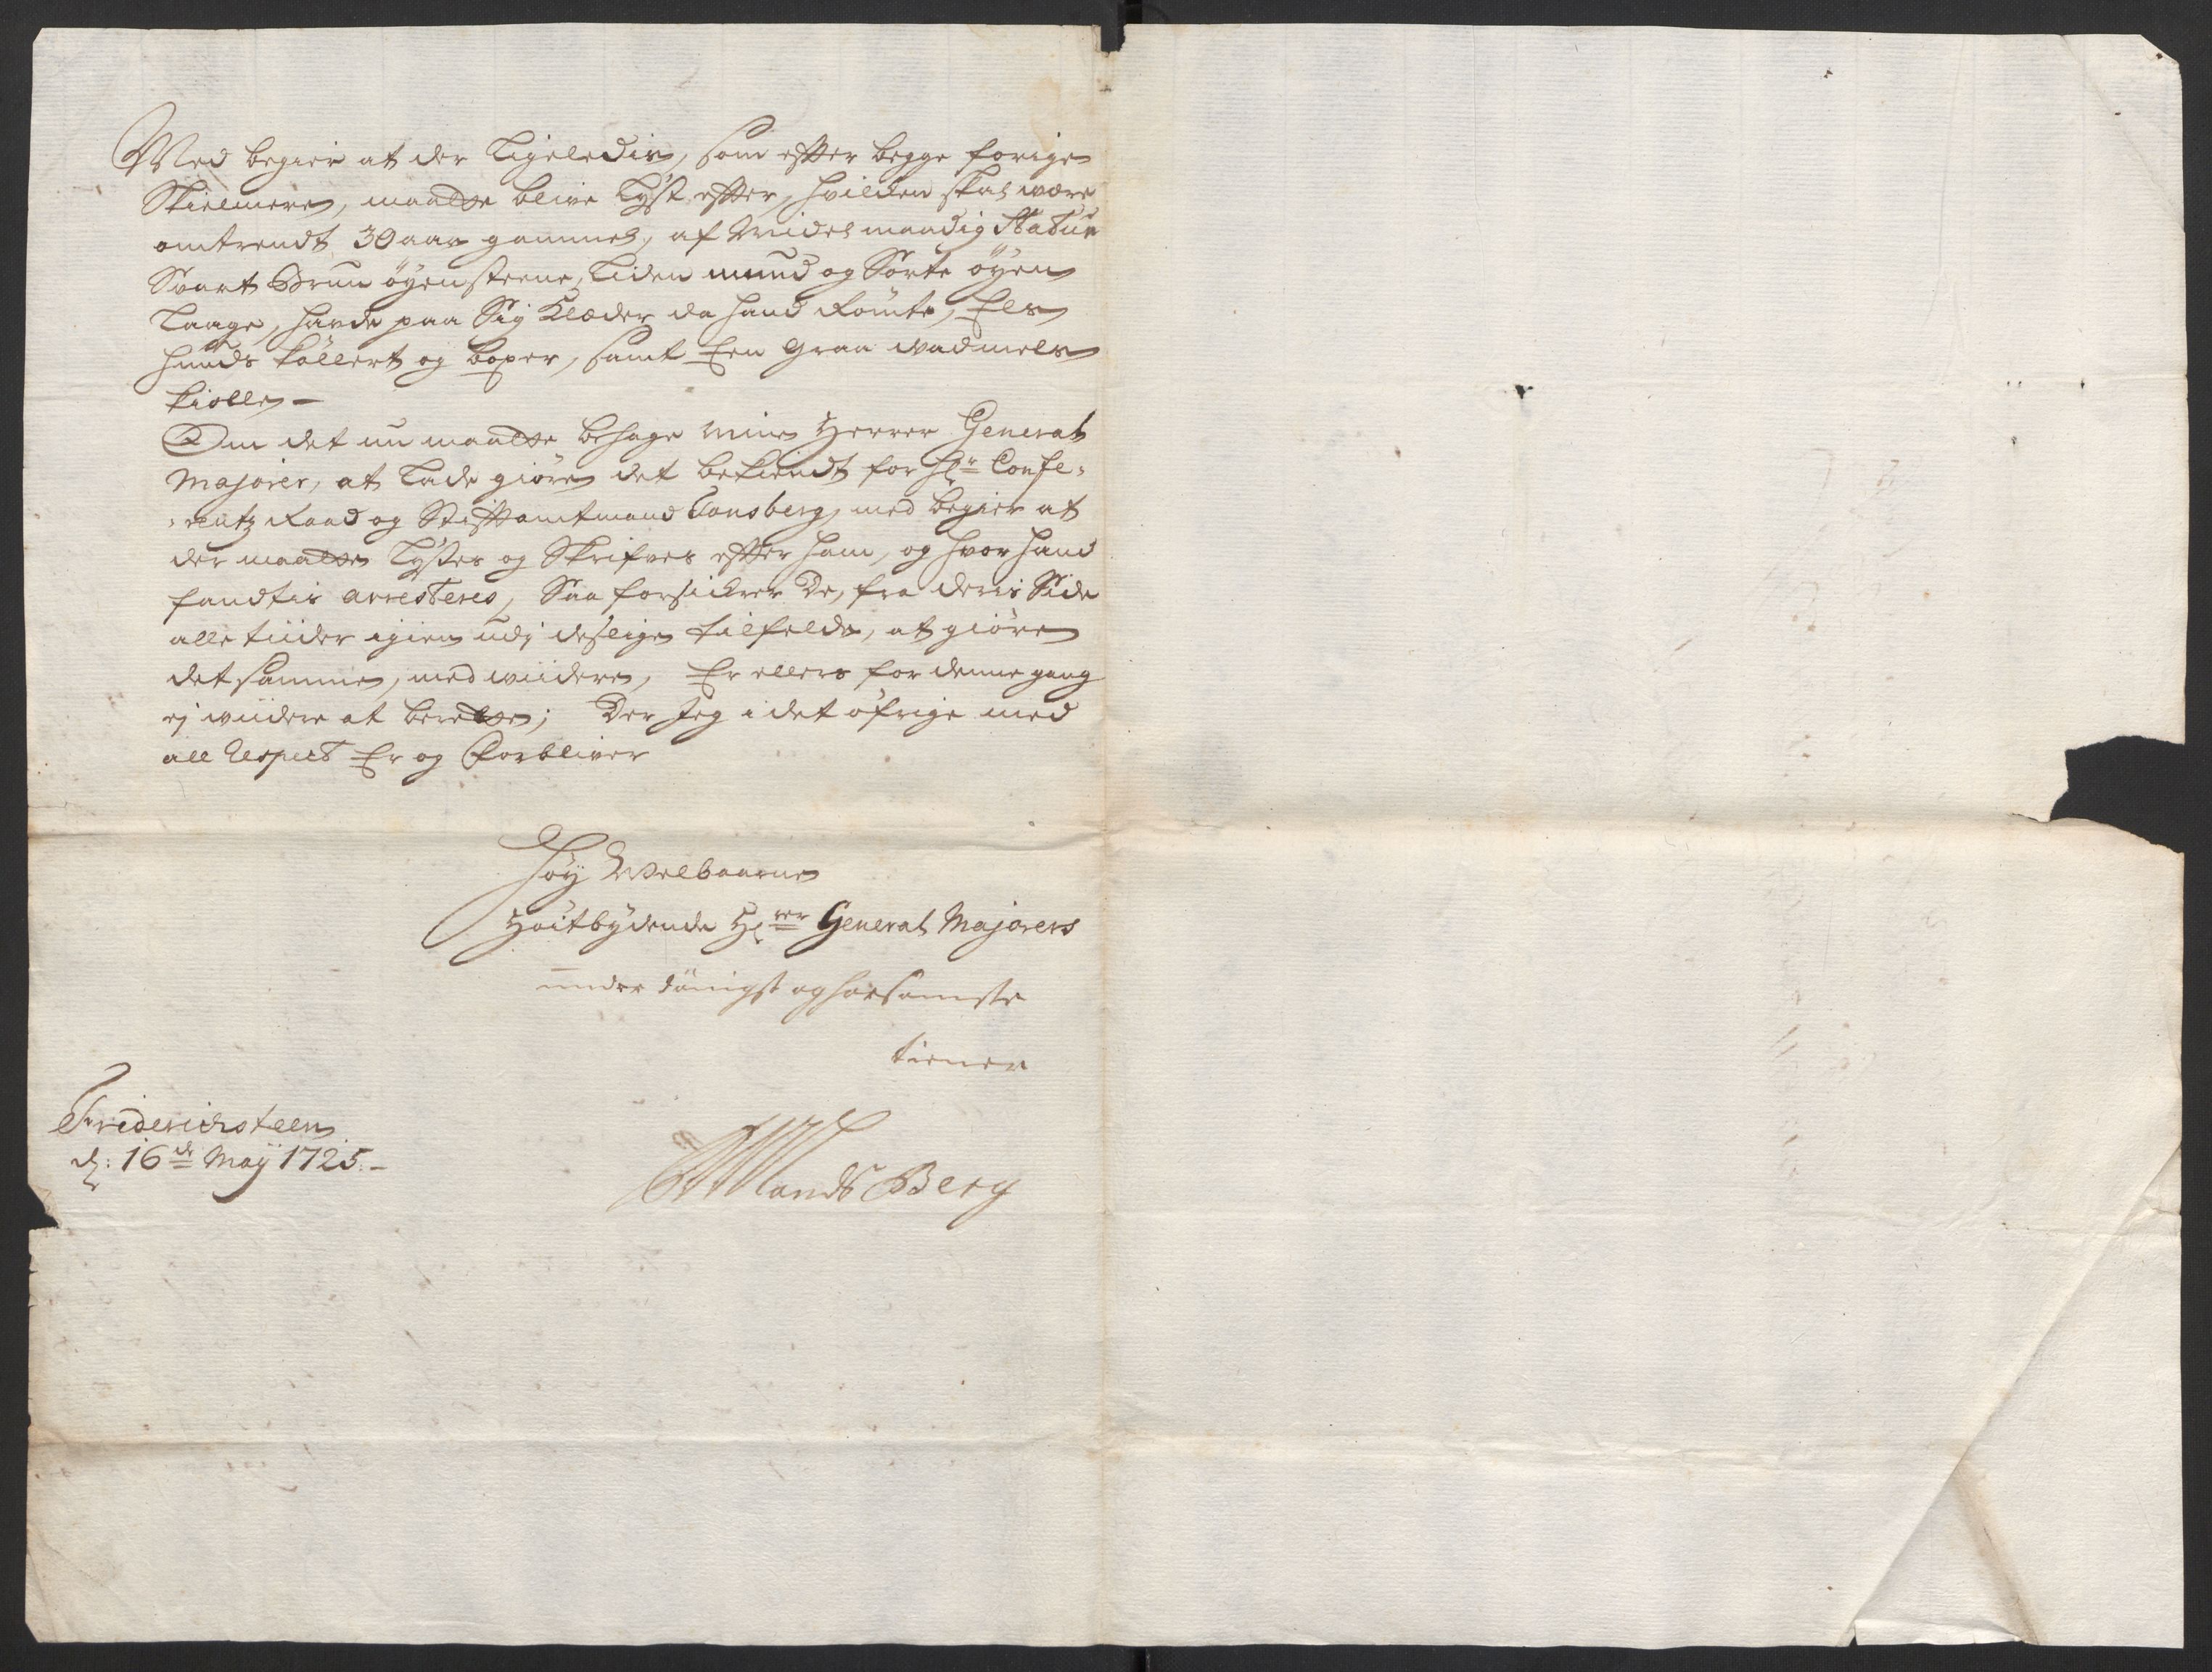 Med begier at der Ligeledis, som effter begge forige
Skielmere, maatte blive Lyst effter, hvilcken skal være
omtrendt 30 aar gammel, af Midelmaadig Statur
Svart Brun øyensteene, Liden mund og Sorte øyen
Laage, hafde paa Sig Klæder da hand Römte, Els
huuds køllert og boxer, samt Een graa wadmels
kiolle –
Om det nu maatte behage Mine Herrer General
Majorer, at Lade giøre det bekiendt for Hr Confe-
-rentz Raad og Stifftamtmand Tonsberg, med begier at
der maatte Lyses og Skrifves effter ham, og hvor hand
fandtis arresteres, Saa forsickrer De, fra deris Side
alle tiider igien udj deslige tilfelde, at giøre
det samme, med wiidere, Er ellers for denne gang
ej wiidere at berette; Der Jeg i det øfrige med
all Respect Er og Forbliver
Høy Welbaarne
Høitbydende Hrrer General Majorers
under dånigst og hørsamste
tiener
Friderichsteen
d: 16de Maÿ 1725 –
Lands Berg